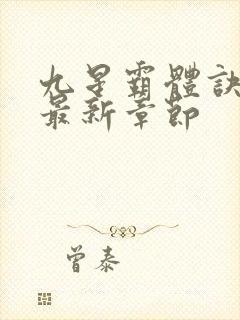 九星霸體訣
最新章節
曾泰